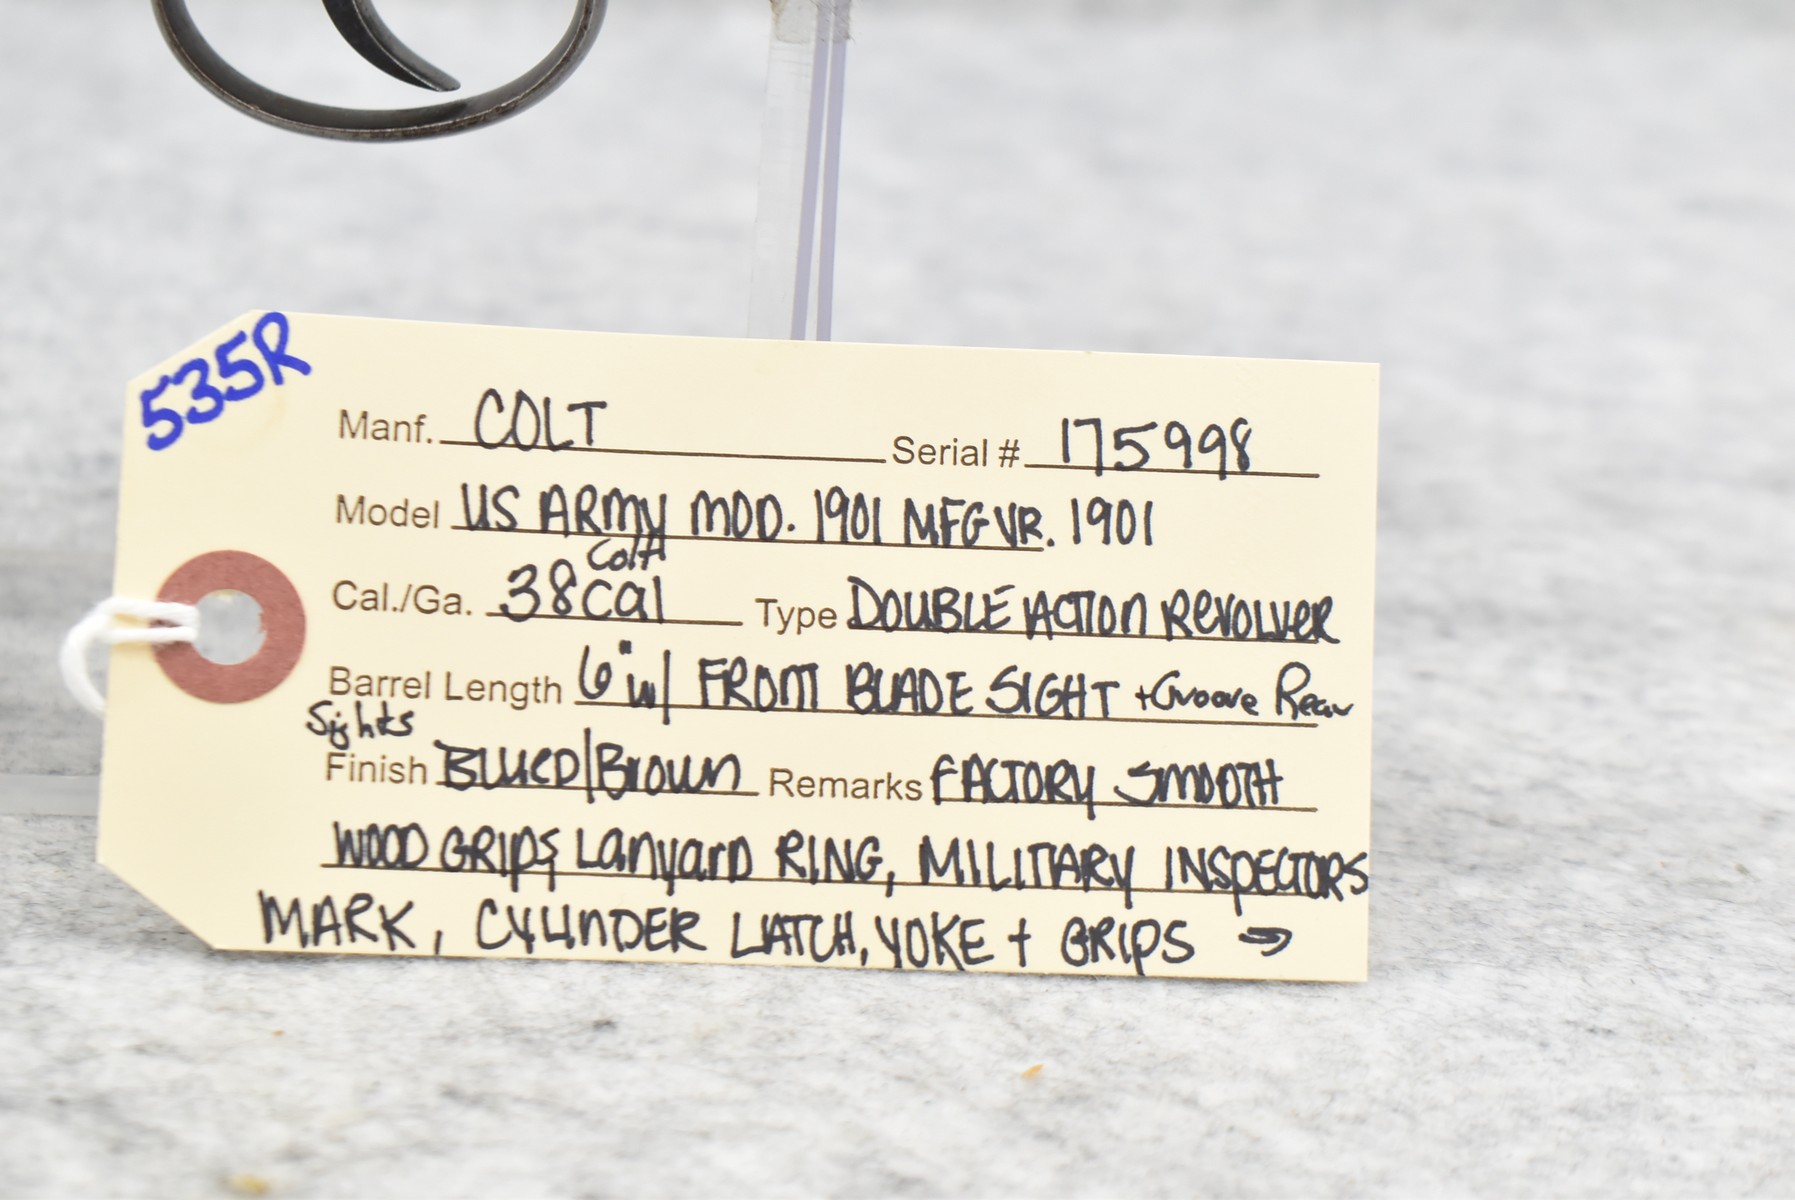 535R
Manf. COLT Serial # 175998
Model US ARMY MOD. 1901 MFG YR. 1901
Colt
Cal./Ga. 38 cal Type DOUBLE ACTION REVOLVER
Barrel Length 6" w/ FRONT BLADE SIGHT + Groove Rear
Sights
Finish BLUED/BROWN Remarks FACTORY SMOOTH
WOOD GRIPS, LANYARD RING, MILITARY INSPECTORS
MARK, CYLINDER LATCH, YOKE + GRIPS →